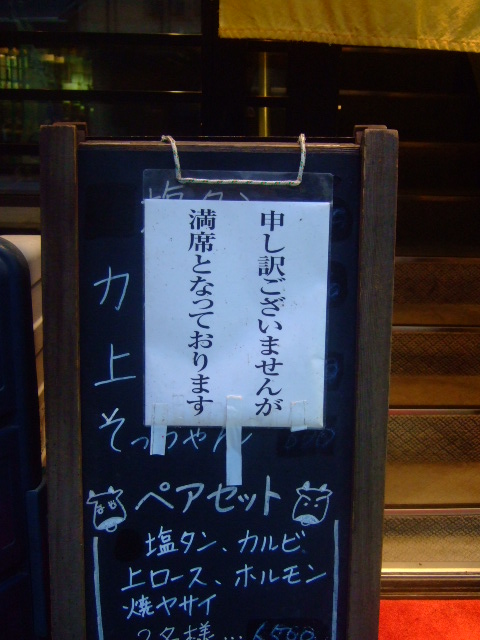 申し訳ございませんが
満席となっております
塩タン
カ
上
そっちゃん
ペアセット
塩タン、カルビ
上ロース、ホルモン
焼ヤサイ
2名様…6500